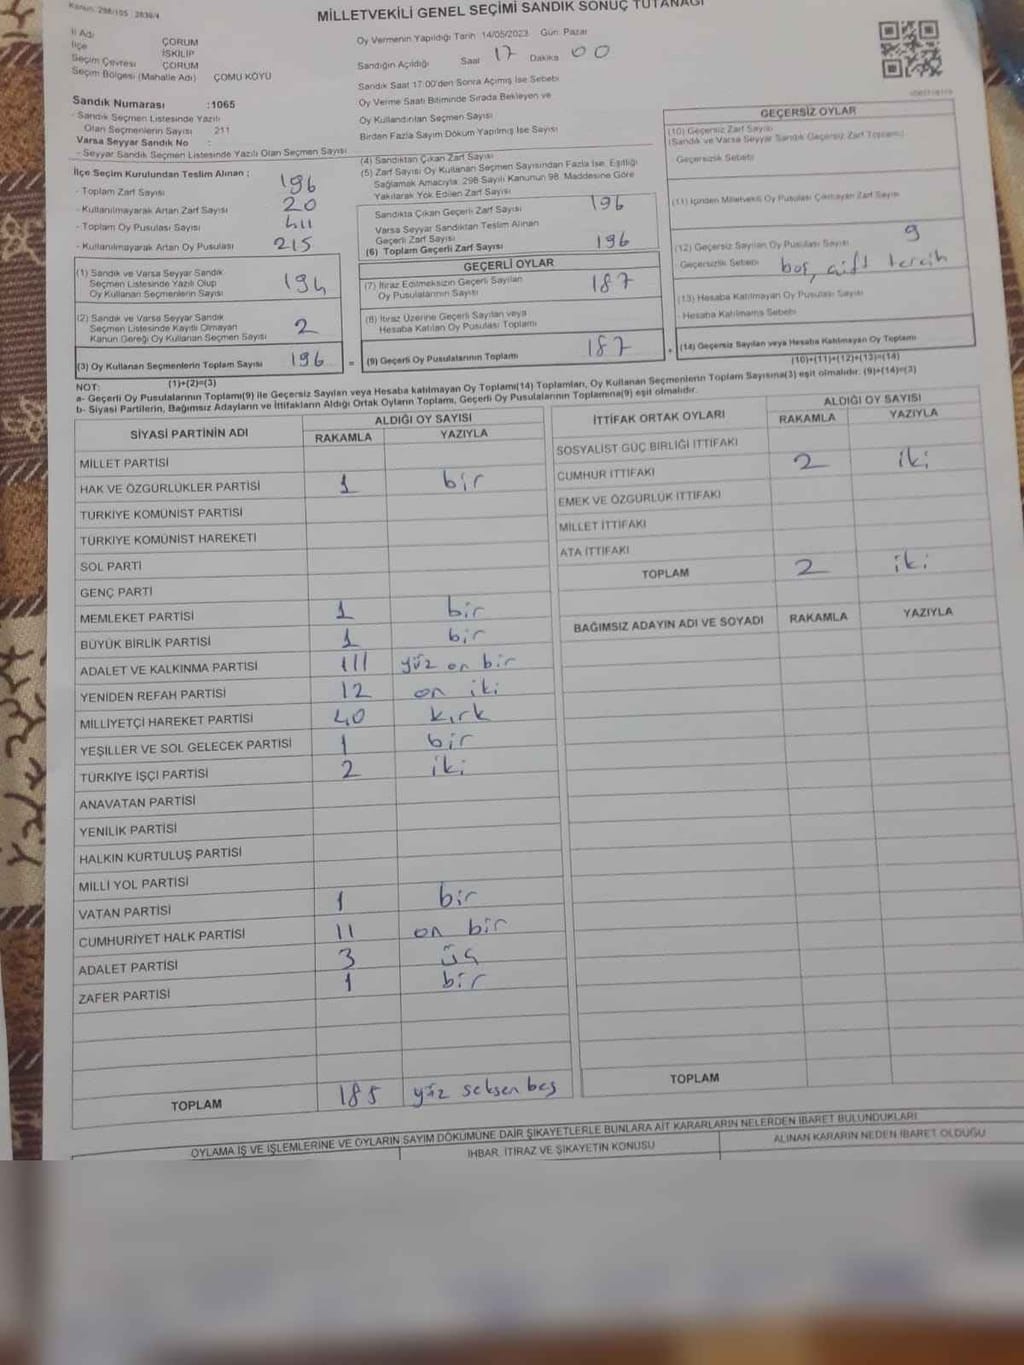 Kanun: 298/105 : 2839/4
MİLLETVEKİLİ GENEL SEÇİMİ SANDIK SONUÇ TUTANAĞI
İl Adı ÇORUM
İlçe İSKİLİP
Seçim Çevresi ÇORUM
Seçim Bölgesi (Mahalle Adı) ÇOMU KÖYÜ
Sandık Numarası :1065
- Sandık Seçmen Listesinde Yazılı
Olan Seçmenlerin Sayısı 211
Varsa Seyyar Sandık No :
- Seyyar Sandık Seçmen Listesinde Yazılı Olan Seçmen Sayısı
Oy Vermenin Yapıldığı Tarih 14/05/2023 Gün: Pazar
Sandığın Açıldığı Saat 17 Dakika 00
Sandık Saat 17:00'den Sonra Açılmış İse Sebebi
Oy Verme Saati Bitiminde Sırada Bekleyen ve
Oy Kullandırılan Seçmen Sayısı
Birden Fazla Sayım Döküm Yapılmış İse Sayısı
İlçe Seçim Kurulundan Teslim Alınan :
- Toplam Zarf Sayısı 196
- Kullanılmayarak Artan Zarf Sayısı 20
- Toplam Oy Pusulası Sayısı 411
- Kullanılmayarak Artan Oy Pusulası 215
(1) Sandık ve Varsa Seyyar Sandık
Seçmen Listesinde Yazılı Olup
Oy Kullanan Seçmenlerin Sayısı 194
(2) Sandık ve Varsa Seyyar Sandık
Seçmen Listesinde Kayıtlı Olmayan
Kanun Gereği Oy Kullanan Seçmen Sayısı 2
(3) Oy Kullanan Seçmenlerin Toplam Sayısı 196 =
(1)+(2)=(3)
(4) Sandıktan Çıkan Zarf Sayısı
(5) Zarf Sayısı Oy Kullanan Seçmen Sayısından Fazla İse, Eşitliği
Sağlamak Amacıyla, 298 Sayılı Kanunun 98. Maddesine Göre
Yakılarak Yok Edilen Zarf Sayısı
Sandıkta Çıkan Geçerli Zarf Sayısı 196
Varsa Seyyar Sandıktan Teslim Alınan
Geçerli Zarf Sayısı
(6) Toplam Geçerli Zarf Sayısı 196
GEÇERLİ OYLAR
(7) İtiraz Edilmeksizin Geçerli Sayılan
Oy Pusulalarının Sayısı 187
(8) İtiraz Üzerine Geçerli Sayılan veya
Hesaba Katılan Oy Pusulası Toplamı
(9) Geçerli Oy Pusulalarının Toplamı 187 +
GEÇERSİZ OYLAR
(10) Geçersiz Zarf Sayısı
(Sandık ve Varsa Seyyar Sandık Geçersiz Zarf Toplamı)
Geçersizlik Sebebi
(11) İçinden Milletvekili Oy Pusulası Çıkmayan Zarf Sayısı
(12) Geçersiz Sayılan Oy Pusulası Sayısı 9
Geçersizlik Sebebi boş, çift tercih
(13) Hesaba Katılmayan Oy Pusulası Sayısı
- Hesaba Katılmama Sebebi
(14) Geçersiz Sayılan veya Hesaba Katılmayan Oy Toplamı
(10)+(11)+(12)+(13)=(14)
NOT:
a- Geçerli Oy Pusulalarının Toplamı(9) ile Geçersiz Sayılan veya Hesaba katılmayan Oy Toplamı(14) Toplamları, Oy Kullanan Seçmenlerin Toplam Sayısına(3) eşit olmalıdır. (9)+(14)=(3)
b- Siyasi Partilerin, Bağımsız Adayların ve İttifakların Aldığı Ortak Oyların Toplamı, Geçerli Oy Pusulalarının Toplamına(9) eşit olmalıdır.
SİYASİ PARTİNİN ADI ALDIĞI OY SAYISI
RAKAMLA YAZIYLA
MİLLET PARTİSİ
HAK VE ÖZGÜRLÜKLER PARTİSİ 1 bir
TÜRKİYE KOMÜNİST PARTİSİ
TÜRKİYE KOMÜNİST HAREKETİ
SOL PARTİ
GENÇ PARTİ
MEMLEKET PARTİSİ 1 bir
BÜYÜK BİRLİK PARTİSİ 1 bir
ADALET VE KALKINMA PARTİSİ 111 yüz on bir
YENİDEN REFAH PARTİSİ 12 on iki
MİLLİYETÇİ HAREKET PARTİSİ 40 kırk
YEŞİLLER VE SOL GELECEK PARTİSİ 1 bir
TÜRKİYE İŞÇİ PARTİSİ 2 iki
ANAVATAN PARTİSİ
YENİLİK PARTİSİ
HALKIN KURTULUŞ PARTİSİ
MİLLİ YOL PARTİSİ
VATAN PARTİSİ 1 bir
CUMHURİYET HALK PARTİSİ 11 on bir
ADALET PARTİSİ 3 üç
ZAFER PARTİSİ 1 bir
TOPLAM 185 yüz seksen beş
İTTİFAK ORTAK OYLARI ALDIĞI OY SAYISI
RAKAMLA YAZIYLA
SOSYALİST GÜÇ BİRLİĞİ İTTİFAKI
CUMHUR İTTİFAKI 2 iki
EMEK VE ÖZGÜRLÜK İTTİFAKI
MİLLET İTTİFAKI
ATA İTTİFAKI
TOPLAM 2 iki
BAĞIMSIZ ADAYIN ADI VE SOYADI RAKAMLA YAZIYLA
TOPLAM
OYLAMA İŞ VE İŞLEMLERİNE VE OYLARIN SAYIM DÖKÜMÜNE DAİR ŞİKAYETLERLE BUNLARA AİT KARARLARIN NELERDEN İBARET BULUNDUKLARI
İHBAR, İTİRAZ VE ŞİKAYETİN KONUSU
ALINAN KARARIN NEDEN İBARET OLDUĞU